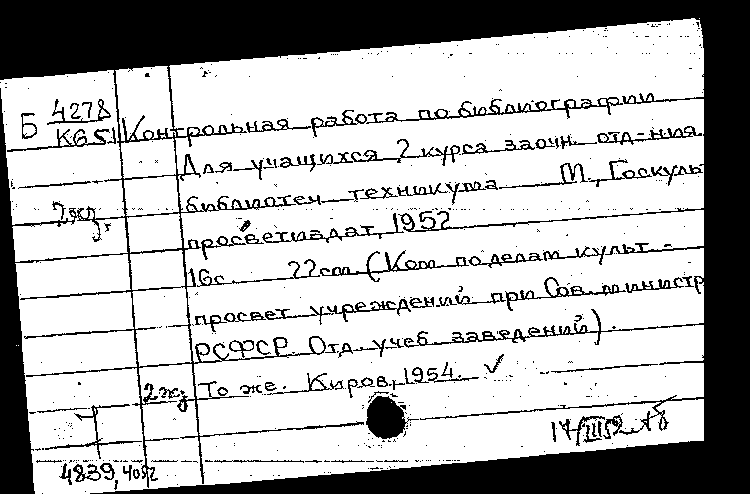 Б 4278
К651 Контрольная работа по библиографии
Для учащихся 2 курса заочн. отд-ния
библиотеч. техникума М., Госкульт
2жз. просветиздат, 1952
16с. 22см. (Ком. по делам культ.-
просвет. учреждений при Сов. министр
РСФСР. Отд. учеб. заведений).
2жз То же. Киров, 1954. ✓
17/III52
4839, 4052